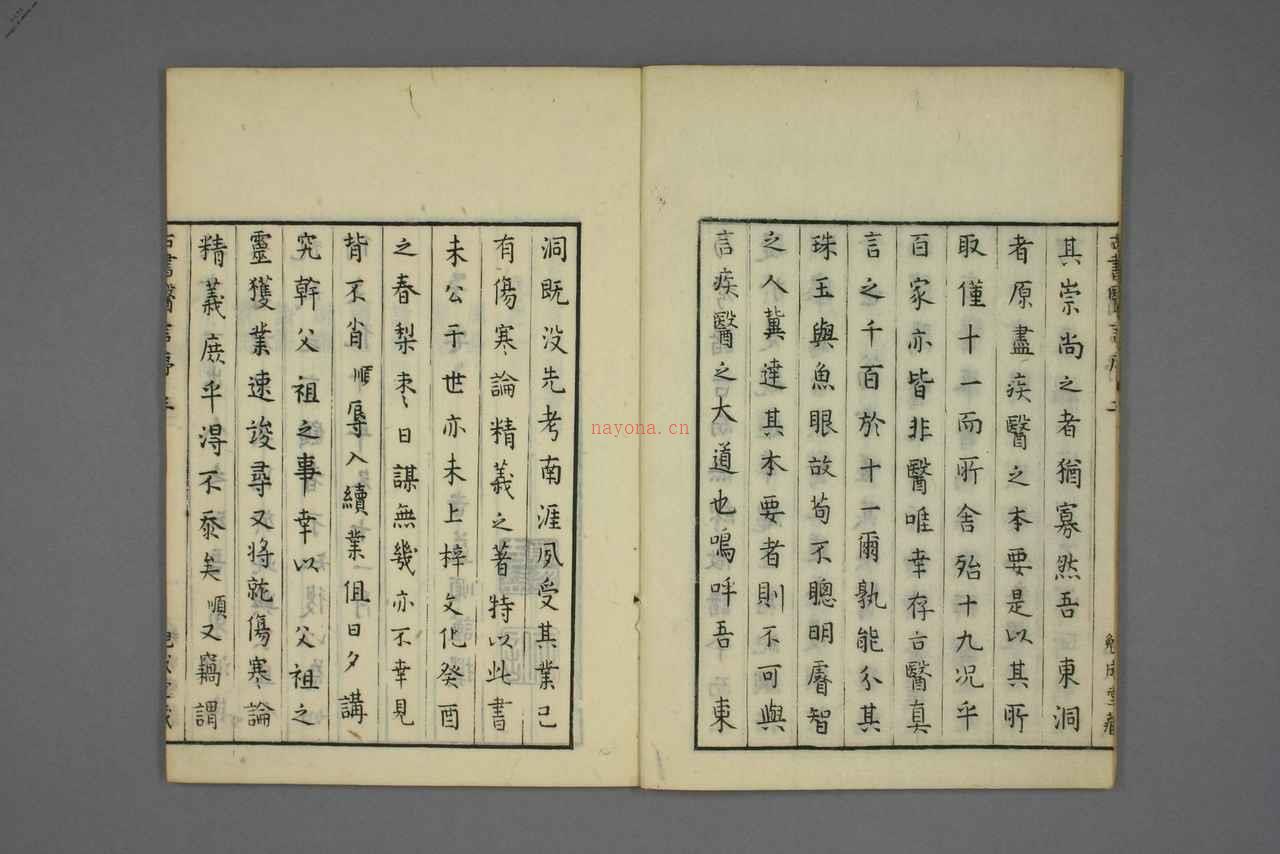 其崇尚之者猶寡然吾東洞
者原盡疾醫之本要是以其所
取僅十一而所舍殆十九況乎
百家亦皆非醫唯幸存古醫真
言之千百於十一爾孰能分其
珠玉與魚眼故苟不聰明睿智
之人冀達其本要者則不可與
言疾醫之大道也嗚呼吾東
洞既没先考南涯夙受其業已
有傷寒論精義之著特以此書
未公于世亦未上梓文化癸酉
之春梨棗日謀無幾亦不幸見
背不肖順辱入續業但日夕講
究幹父祖之事幸以父祖之
靈獲業速竣尋又將就傷寒論
精義庶乎得不忝矣順又竊謂
古書醫言
nayona.cn